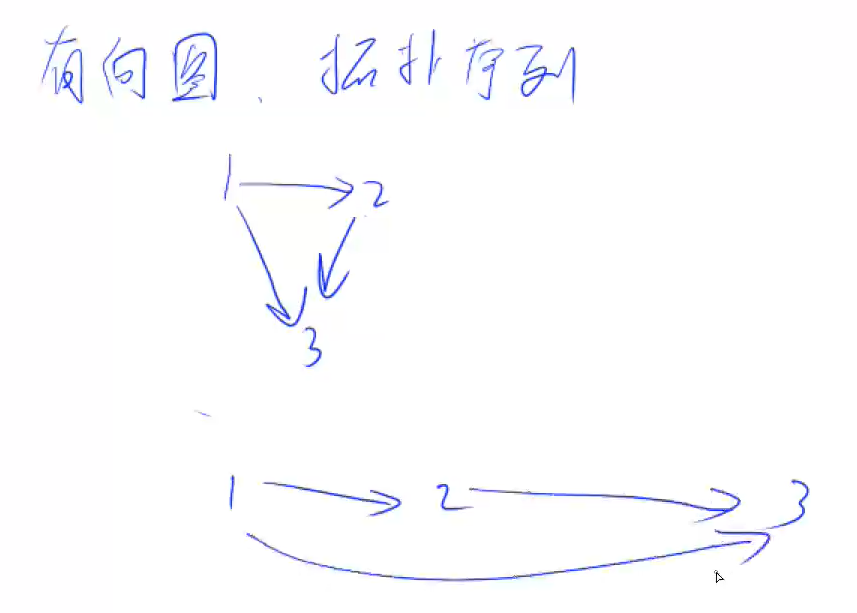 有向图、拓扑序列
1 2
3
1 2 3